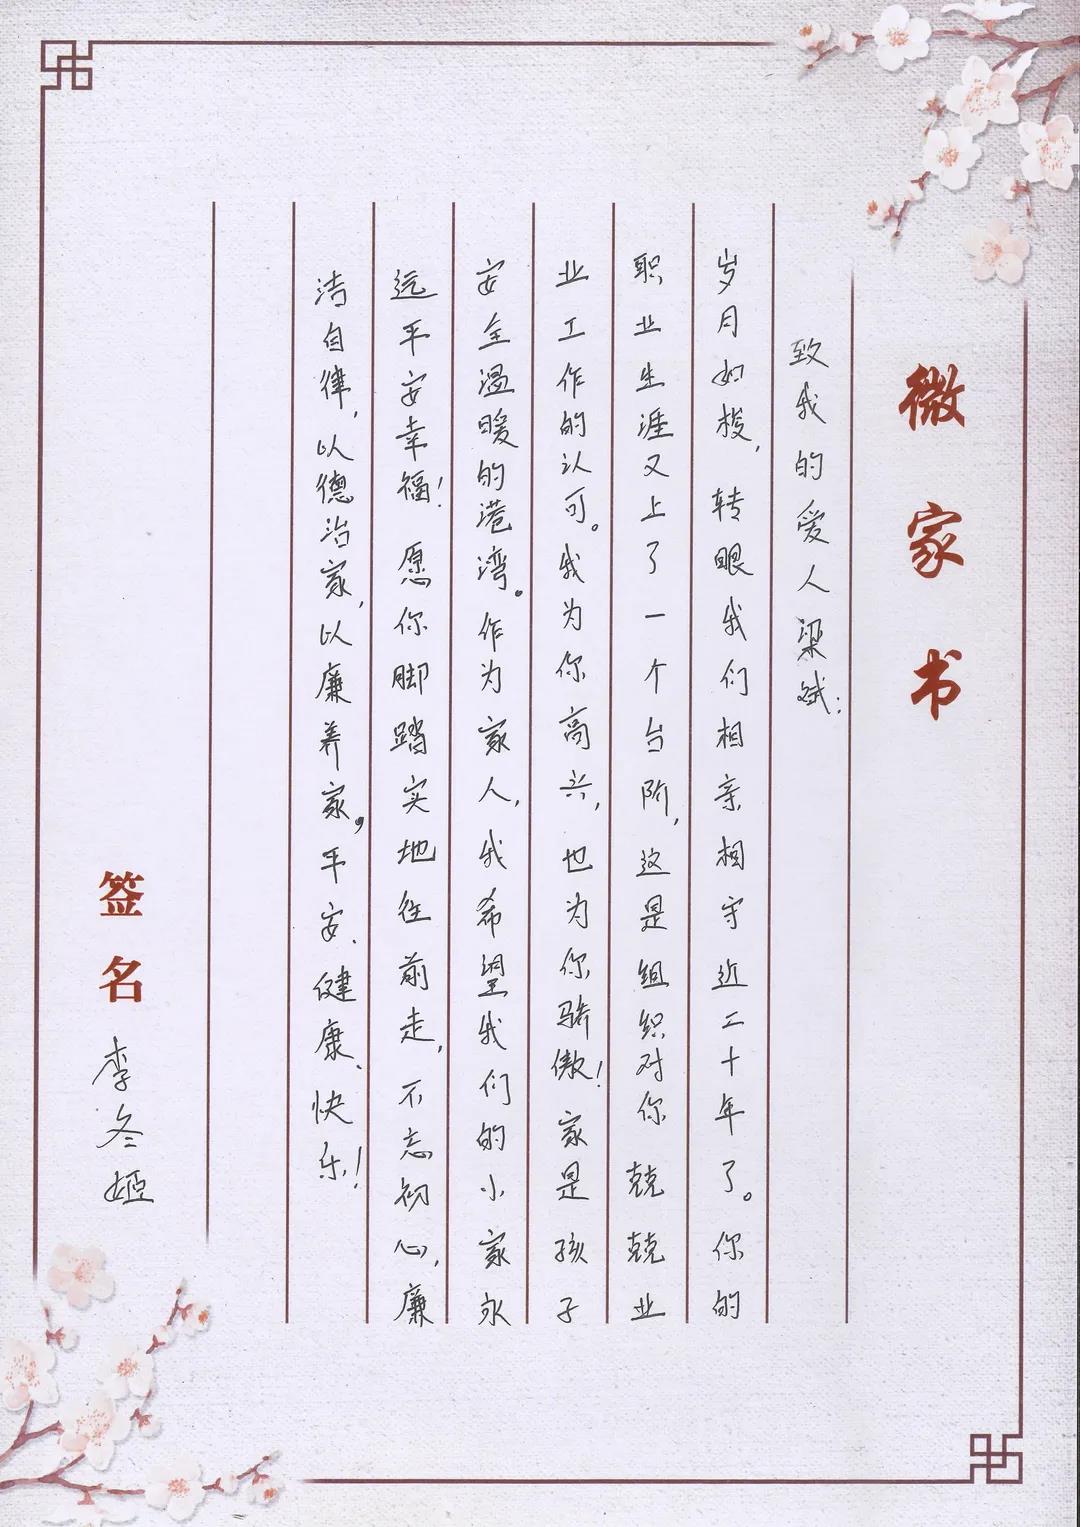 微家书
致我的爱人梁斌：
岁月如梭，转眼我们相亲相守近二十年了。你的
职业生涯又上了一个台阶，这是组织对你兢兢业
业工作的认可。我为你高兴，也为你骄傲！家是孩子
安全温暖的港湾。作为家人，我希望我们的小家永
远平安幸福！愿你脚踏实地往前走，不忘初心，廉
洁自律，以德治家，以廉养家。平安、健康、快乐！
签名 李冬姬